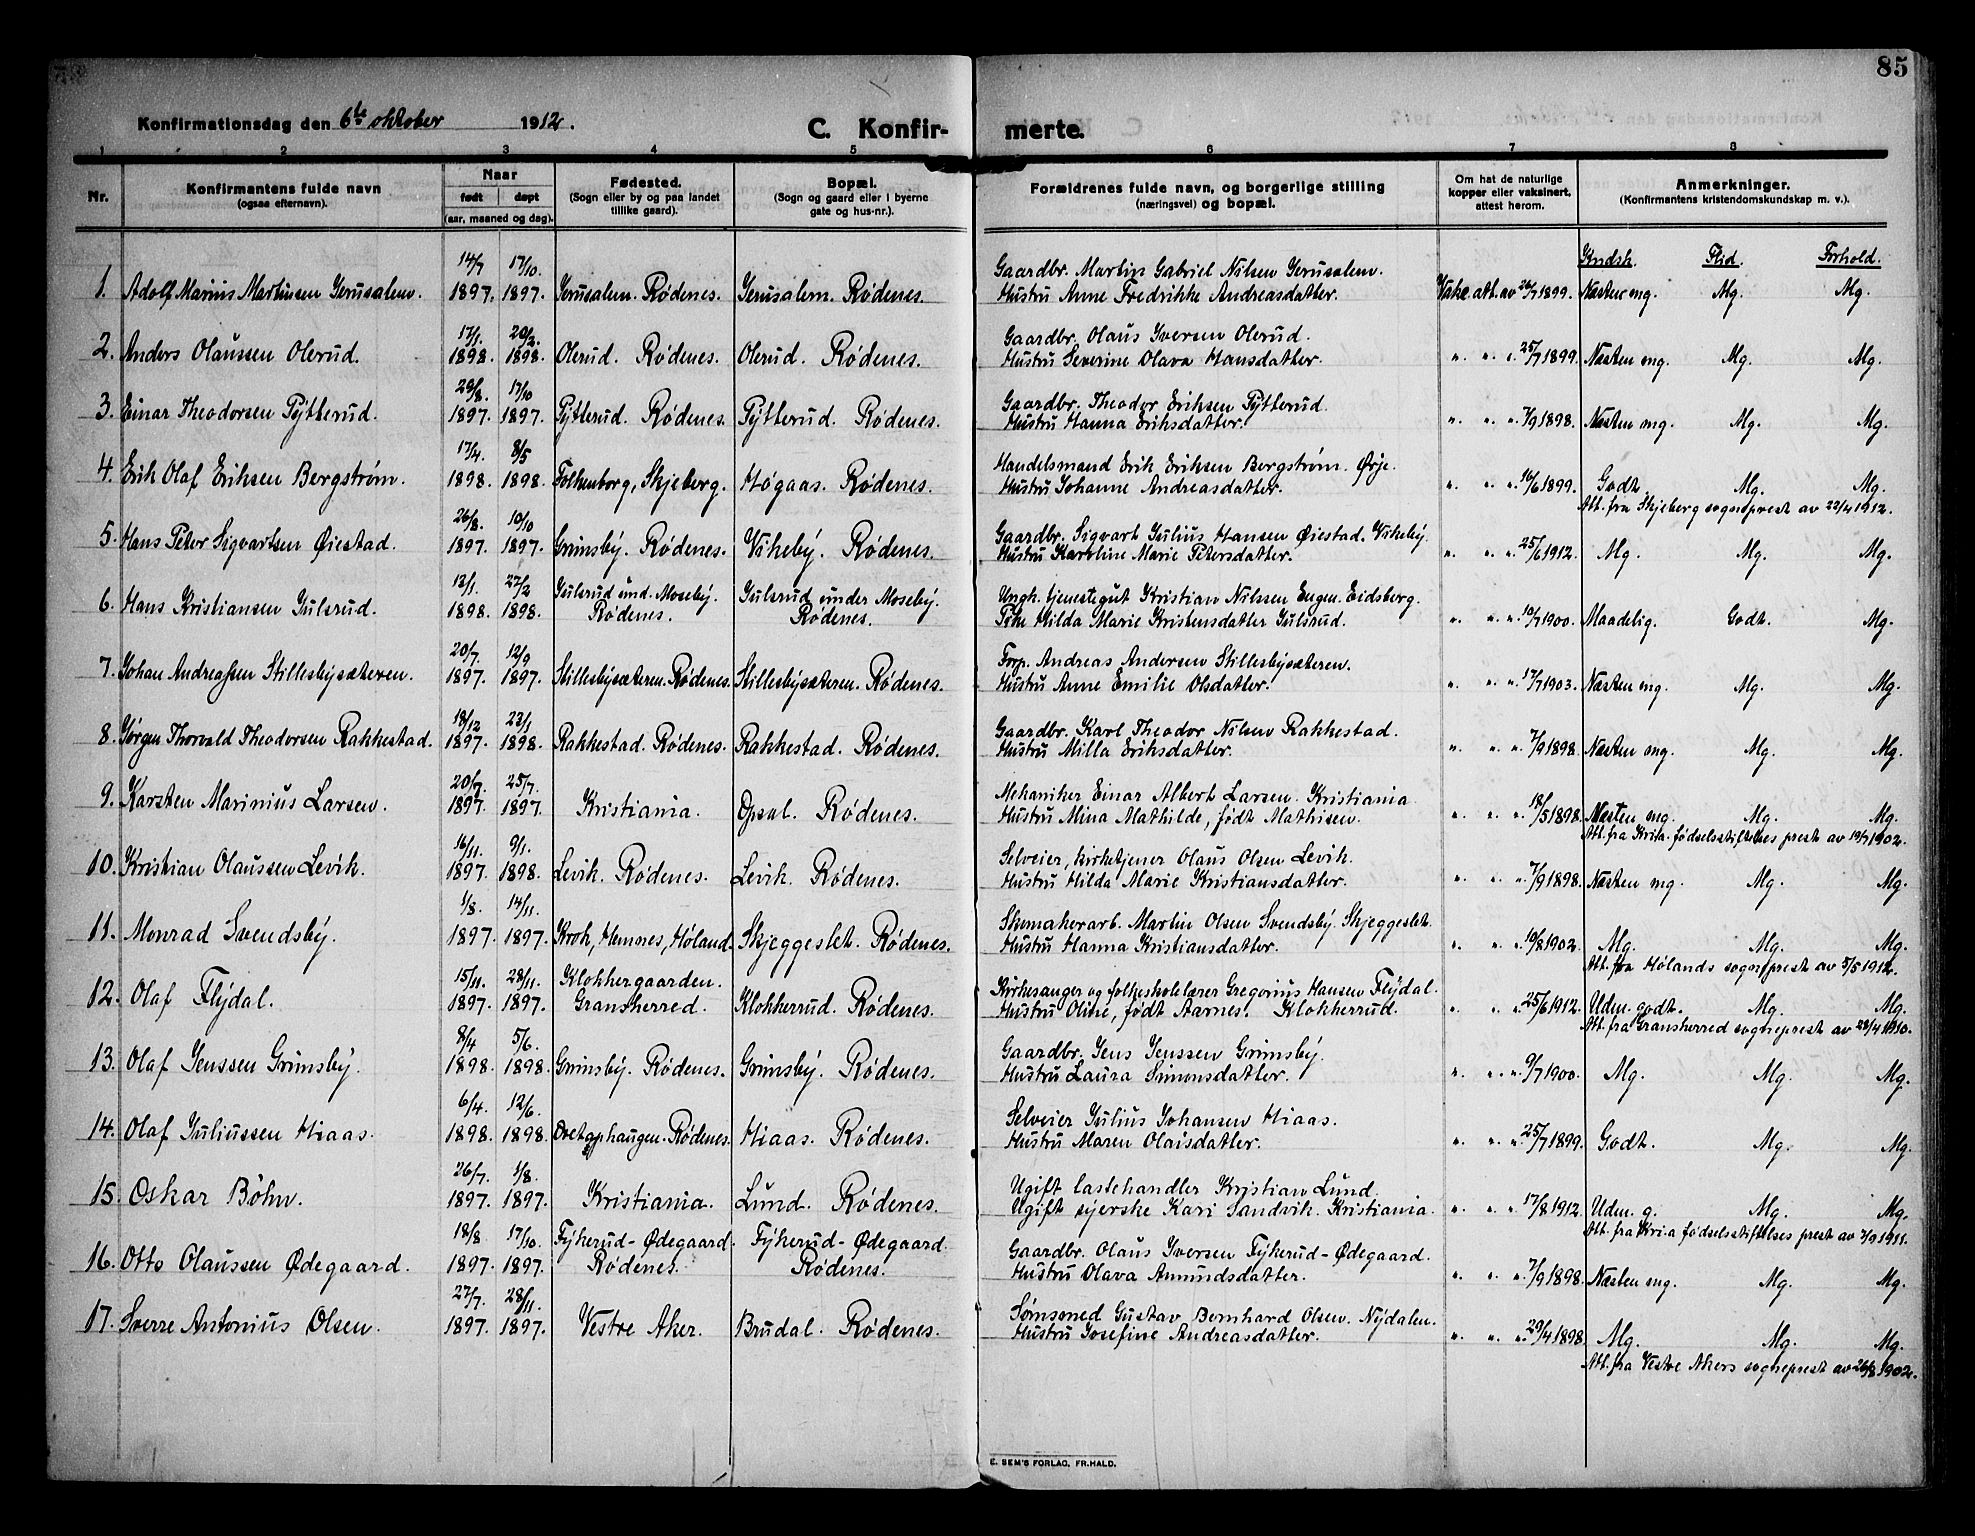 85
Konfirmationsdag den 6te oktober 1912.
C. Konfir- merte.
1 2 3 4 5 6 7 8
Nr.
Konfirmantens fulde navn
(ogsaa efternavn).
Naar
født døpt
(aar, maaned og dag).
Fødested.
(Sogn eller by og paa landet
tillike gaard).
Bopæl.
(Sogn og gaard eller i byerne
gate og hus-nr.).
Forældrenes fulde navn, og borgerlige stilling
(næringsvei) og bopæl.
Om hat de naturlige
kopper eller vaksinert,
attest herom.
Anmerkninger.
(Konfirmantens kristendomskundskap m. v.).
Kndsk. Flid. Forhold.
14/7 17/10 Gaardbr. Martin Gabriel Nilsen Jerusalem.
1. Adolf Marius Martinsen Jerusalem. 1897. 1897. Jerusalem. Rødenes. Jerusalem. Rødenes. Hustru Anne Fredrikke Andreasdatter. Vakc. att. av 26/7 1899. Næsten mg. Mg. Mg.
17/1. 20/2. Gaardbr. Olaus Iversen Olerud.
2. Anders Olaussen Olerud. 1898. 1898. Olerud. Rødenes. Olerud. Rødenes. Hustru Severine Olava Hansdatter. " " " 25/7 1899. Næsten mg. Mg. Mg.
29/8. 17/10 Gaardbr. Theodor Eriksen Tytterud.
3. Einar Theodorsen Tytterud. 1897. 1897. Tytterud. Rødenes. Tytterud. Rødenes. Hustru Hanna Eriksdatter. " " " 7/9 1898. Næsten mg. Mg. Mg.
17/4. 8/5 Handelsmand Erik Eriksen Bergstrøm. Ørje.
4. Erik Olaf Eriksen Bergstrøm. 1898. 1898. Folkenborg, Skjeberg. Høgaas. Rødenes. Hustru Johanne Andreasdatter. " " " 16/6 1899. Godt. Mg. Mg.
Att. fra Skjeberg sogneprest av 22/4 1912.
26/8. 10/10 Gaardbr. Sigvart Julius Hansen Øiestad. Vikeby.
5. Hans Peter Sigvartsen Øiestad. 1897. 1897. Grimsby. Rødenes. Vikeby. Rødenes. Hustru Karoline Marie Petersdatter. " " " 25/6 1912. Mg. Mg. Mg.
13/1. 27/2 Julsrud und. Moseby. Julsrud under Moseby. Ungk. tjenestegut Kristian Nilssen Eugen. Eidsberg.
6. Hans Kristiansen Julsrud. 1898. 1898. Rødenes. Rødenes. Pike Hilda Marie Kristensdatter Julsrud. " " " 10/7 1900. Maadelig. Godt. Mg.
20/7. 12/9 Forp. Andreas Andersen Stillesbysæteren.
7. Johan Andreassen Stillesbysæteren. 1897. 1897. Stillesbysæteren. Rødenes. Stillesbysæteren. Rødenes. Hustru Anne Emilie Olsdatter. " " " 17/7 1903. Næsten mg. Mg. Mg.
18/12 23/1 Gaardbr. Karl Theodor Nilsen Rakkestad.
8. Jørgen Thorvald Theodorsen Rakkestad. 1897. 1898. Rakkestad. Rødenes. Rakkestad. Rødenes. Hustru Milla Eriksdatter. " " " 7/9 1898. Næsten mg. Mg. Mg.
20/7. 25/7. Mekaniker Einar Albert Larsen. Kristiania
9. Karsten Marinius Larsen. 1897. 1897. Kristiania. Opsal. Rødenes. Hustru Mina Mathilde, født Mathisen. " " " 18/5 1898. Næsten mg. Mg. Mg.
Att. fra Krita. fødselsstiftelses prest av 19/7 1902.
16/11. 9/1. Selveier, kirketjener Olaus Olsen Levik.
10. Kristian Olaussen Levik. 1897. 1898. Levik. Rødenes. Levik. Rødenes. Hustru Hilda Marie Kristiansdatter. " " " 7/9 1898. Næsten mg. Mg. Mg.
1/8. 14/11. Skomakerarb. Martin Olsen Svendsby. Skjeggeslet.
11. Monrad Svendsby. 1897. 1897. Krok, Hemnes, Høland. Skjeggeslet. Rødenes. Hustru Hanna Kristiansdatter. " " " 19/8 1902. Mg. Mg. Mg.
Att. fra Hølands sogneprest av 5/5 1912.
15/11. 28/11. Klokkergaarden. Kirkesanger og folkeskolelærer Gregorius Hansen Flydal.
12. Olaf Flydal. 1897. 1897. Gransherred. Klokkerrud. Rødenes. Hustru Oline, født Aarnes. Klokkerrud. " " " 25/6 1912. Udm. godt. Mg. Mg.
Att. fra Gransherred sogneprest av 28/4 1910.
8/4 5/6. Gaardbr. Jens Jenssen Grimsby.
13. Olaf Jenssen Grimsby. 1898. 1898. Grimsby. Rødenes. Grimsby. Rødenes. Hustru Laura Simonsdatter. " " " 9/7 1900. Mg. Mg. Mg.
6/4. 12/6. Selveier Julius Johansen Hiaas.
14. Olaf Juliussen Hiaas. 1898. 1898. Rødenes. Hiaas. Rødenes. Hustru Maren Olaisdatter. " " " 25/7 1899. Godt. Mg. Mg.
26/7. 1/8. Ugift lastehandler Kristian Lund.
15. Oskar Böhn. 1897. 1897. Kristiania. Lund. Rødenes. Ugift syerske Kari Sandvik. Kristiania. " " " 17/8 1912. Udm. g. Mg. Mg.
Att. fra Kri.a fødselsstiftelses prest av 2/9 1911.
18/8 17/10 Fykerud-Ødegaard. Fykerud-Ødegaard. Gaardbr. Olaus Iversen Fykerud-Ødegaard.
16. Otto Olaussen Ødegaard. 1897. 1897. Rødenes. Rødenes. Hustru Olava Amundsdatter. " " " 7/9 1898. Næsten mg. Mg. Mg.
27/7. 28/11. Sømsmed Gustav Bernhard Olsen. Nydalen.
17. Sverre Antonius Olsen. 1897. 1897. Vestre Aker. Brudal. Rødenes. Hustru Josefine Andreasdatter. " " " 29/4 1898. Mg. Mg. Mg.
Att. fra Vestre Akers sogneprest av 26/8 1902.
E. SEM'S FORLAG, FR.HALD.